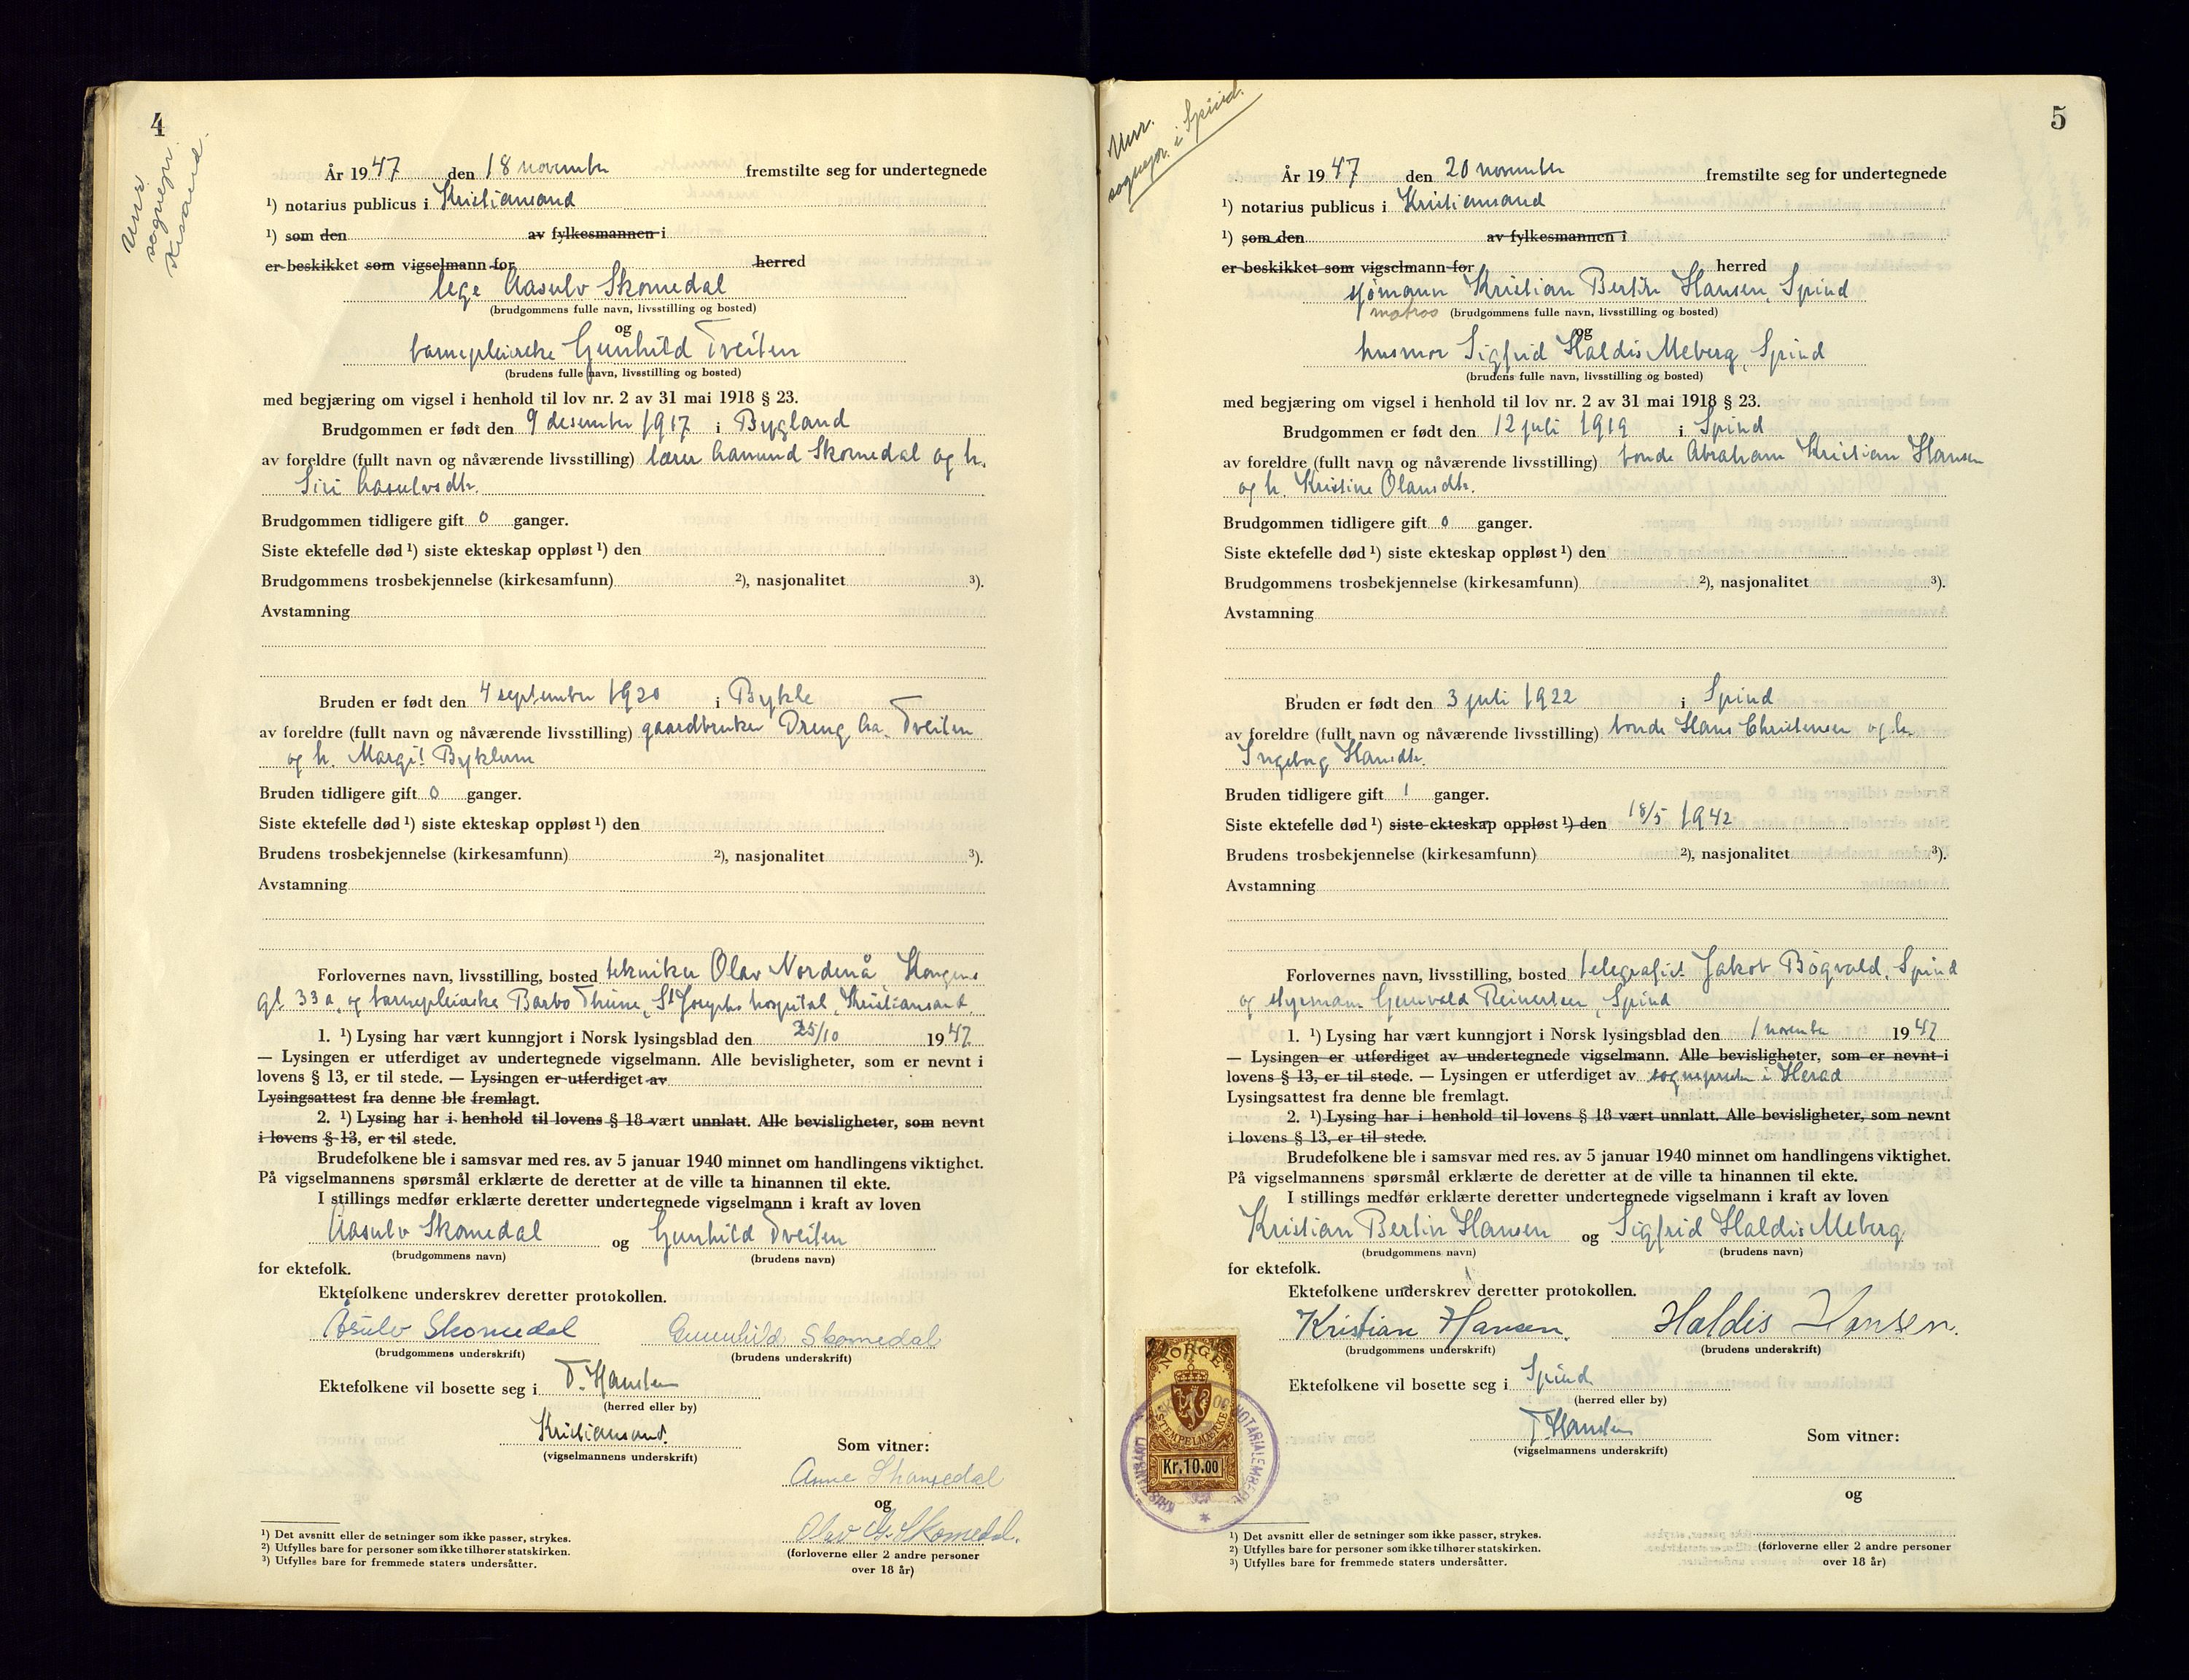 4
Unr.
sognepr.
Krsand.
År 1947 den 18 november fremstilte seg for undertegnede
¹) notarius publicus i Kristiansand
¹) som den av fylkesmannen i
er beskikket som vigselmann for herred
lege Aasulv Skomedal
(brudgommens fulle navn, livsstilling og bosted)
og
barnepleierske Gunhild Tveiten
(brudens fulle navn, livsstilling og bosted)
med begjæring om vigsel i henhold til lov nr. 2 av 31 mai 1918 § 23.
Brudgommen er født den 9 desember 1917 i Bygland
av foreldre (fullt navn og nåværende livsstilling) lærer Aamund Skomedal og h.
Siri Aasulvsdtr.
Brudgommen tidligere gift 0 ganger.
Siste ektefelle død ¹) siste ekteskap oppløst ¹) den
Brudgommens trosbekjennelse (kirkesamfunn) ²), nasjonalitet ³).
Avstamning
Bruden er født den 4 september 1920 i Bykle
av foreldre (fullt navn og nåværende livsstilling) gaardbruker Dreng Aa. Tveiten
og h. Margit Byklum
Bruden tidligere gift 0 ganger.
Siste ektefelle død ¹) siste ekteskap oppløst ¹) den
Brudens trosbekjennelse (kirkesamfunn) ²), nasjonalitet ³).
Avstamning
Forlovernes navn, livsstilling, bosted tekniker Olav Nordenå, Kongens
gt 33a, og barnepleierske Barbo Thune, St Josephs hospital, Kristiansand.
1. ¹) Lysing har vært kunngjort i Norsk lysingsblad den 25/10 1947.
— Lysingen er utferdiget av undertegnede vigselmann. Alle bevisligheter, som er nevnt i
lovens § 13, er til stede. — Lysingen er utferdiget av
Lysingsattest fra denne ble fremlagt.
2. ¹) Lysing har i henhold til lovens § 18 vært unnlatt. Alle bevisligheter, som nevnt
i lovens § 13, er til stede.
Brudefolkene ble i samsvar med res. av 5 januar 1940 minnet om handlingens viktighet.
På vigselmannens spørsmål erklærte de deretter at de ville ta hinannen til ekte.
I stillings medfør erklærte deretter undertegnede vigselmann i kraft av loven
Aasulv Skomedal og Gunhild Tveiten
(brudgommens navn) (brudens navn)
for ektefolk.
Ektefolkene underskrev deretter protokollen.
Åsulv Skomedal Gunnhild Skomedal
(brudgommens underskrift) (brudens underskrift)
Ektefolkene vil bosette seg i T. Hansten
(herred eller by)
Kristiansand.
(vigselmannens underskrift)
Som vitner:
Anne Skomedal
og
Olav G. Skomedal.
(forloverne eller 2 andre personer
over 18 år)
¹) Det avsnitt eller de setninger som ikke passer, strykes.
²) Utfylles bare for personer som ikke tilhører statskirken.
³) Utfylles bare for fremmede staters undersåtter.
5
Unr.
sognepr. i Spind.
År 1947 den 20 november fremstilte seg for undertegnede
¹) notarius publicus i Kristiansand
¹) som den av fylkesmannen i
er beskikket som vigselmann for herred
sjømann Kristian Bertin Hansen, Spind
matros (brudgommens fulle navn, livsstilling og bosted)
og
husmor Sigfrid Haldis Meberg, Spind
(brudens fulle navn, livsstilling og bosted)
med begjæring om vigsel i henhold til lov nr. 2 av 31 mai 1918 § 23.
Brudgommen er født den 12 juli 1919 i Spind
av foreldre (fullt navn og nåværende livsstilling) bonde Abraham Kristian Hansen
og h. Kristine Olausdtr.
Brudgommen tidligere gift 0 ganger.
Siste ektefelle død ¹) siste ekteskap oppløst ¹) den
Brudgommens trosbekjennelse (kirkesamfunn) ²), nasjonalitet ³).
Avstamning
Bruden er født den 3 juli 1922 i Spind
av foreldre (fullt navn og nåværende livsstilling) bonde Hans Christensen og h.
Ingeborg Hansdtr.
Bruden tidligere gift 1 ganger.
Siste ektefelle død ¹) siste ekteskap oppløst ¹) den 18/5 1942
Brudens trosbekjennelse (kirkesamfunn) ²), nasjonalitet ³).
Avstamning
Forlovernes navn, livsstilling, bosted telegrafist Jakob Bøgvald, Spind
og styrmann Gunvald Reinertsen, Spind
1. ¹) Lysing har vært kunngjort i Norsk lysingsblad den 1 november 1947
— Lysingen er utferdiget av undertegnede vigselmann. Alle bevisligheter, som er nevnt i
lovens § 13, er til stede. — Lysingen er utferdiget av sognepresten i Herad
Lysingsattest fra denne ble fremlagt.
2. ¹) Lysing har i henhold til lovens § 18 vært unnlatt. Alle bevisligheter, som nevnt
i lovens § 13, er til stede.
Brudefolkene ble i samsvar med res. av 5 januar 1940 minnet om handlingens viktighet.
På vigselmannens spørsmål erklærte de deretter at de ville ta hinannen til ekte.
I stillings medfør erklærte deretter undertegnede vigselmann i kraft av loven
Kristian Bertin Hansen og Sigfrid Haldis Meberg
(brudgommens navn) (brudens navn)
for ektefolk.
Ektefolkene underskrev deretter protokollen.
Kristian Hansen. Haldis Hansen.
(brudgommens underskrift) (brudens underskrift)
Ektefolkene vil bosette seg i Spind
(herred eller by)
T Hansten
(vigselmannens underskrift)
Som vitner:
og
(forloverne eller 2 andre personer
over 18 år)
NORGE
STEMPELMERKE
Kr. 10.00
¹) Det avsnitt eller de setninger som ikke passer, strykes.
²) Utfylles bare for personer som ikke tilhører statskirken.
³) Utfylles bare for fremmede staters undersåtter.